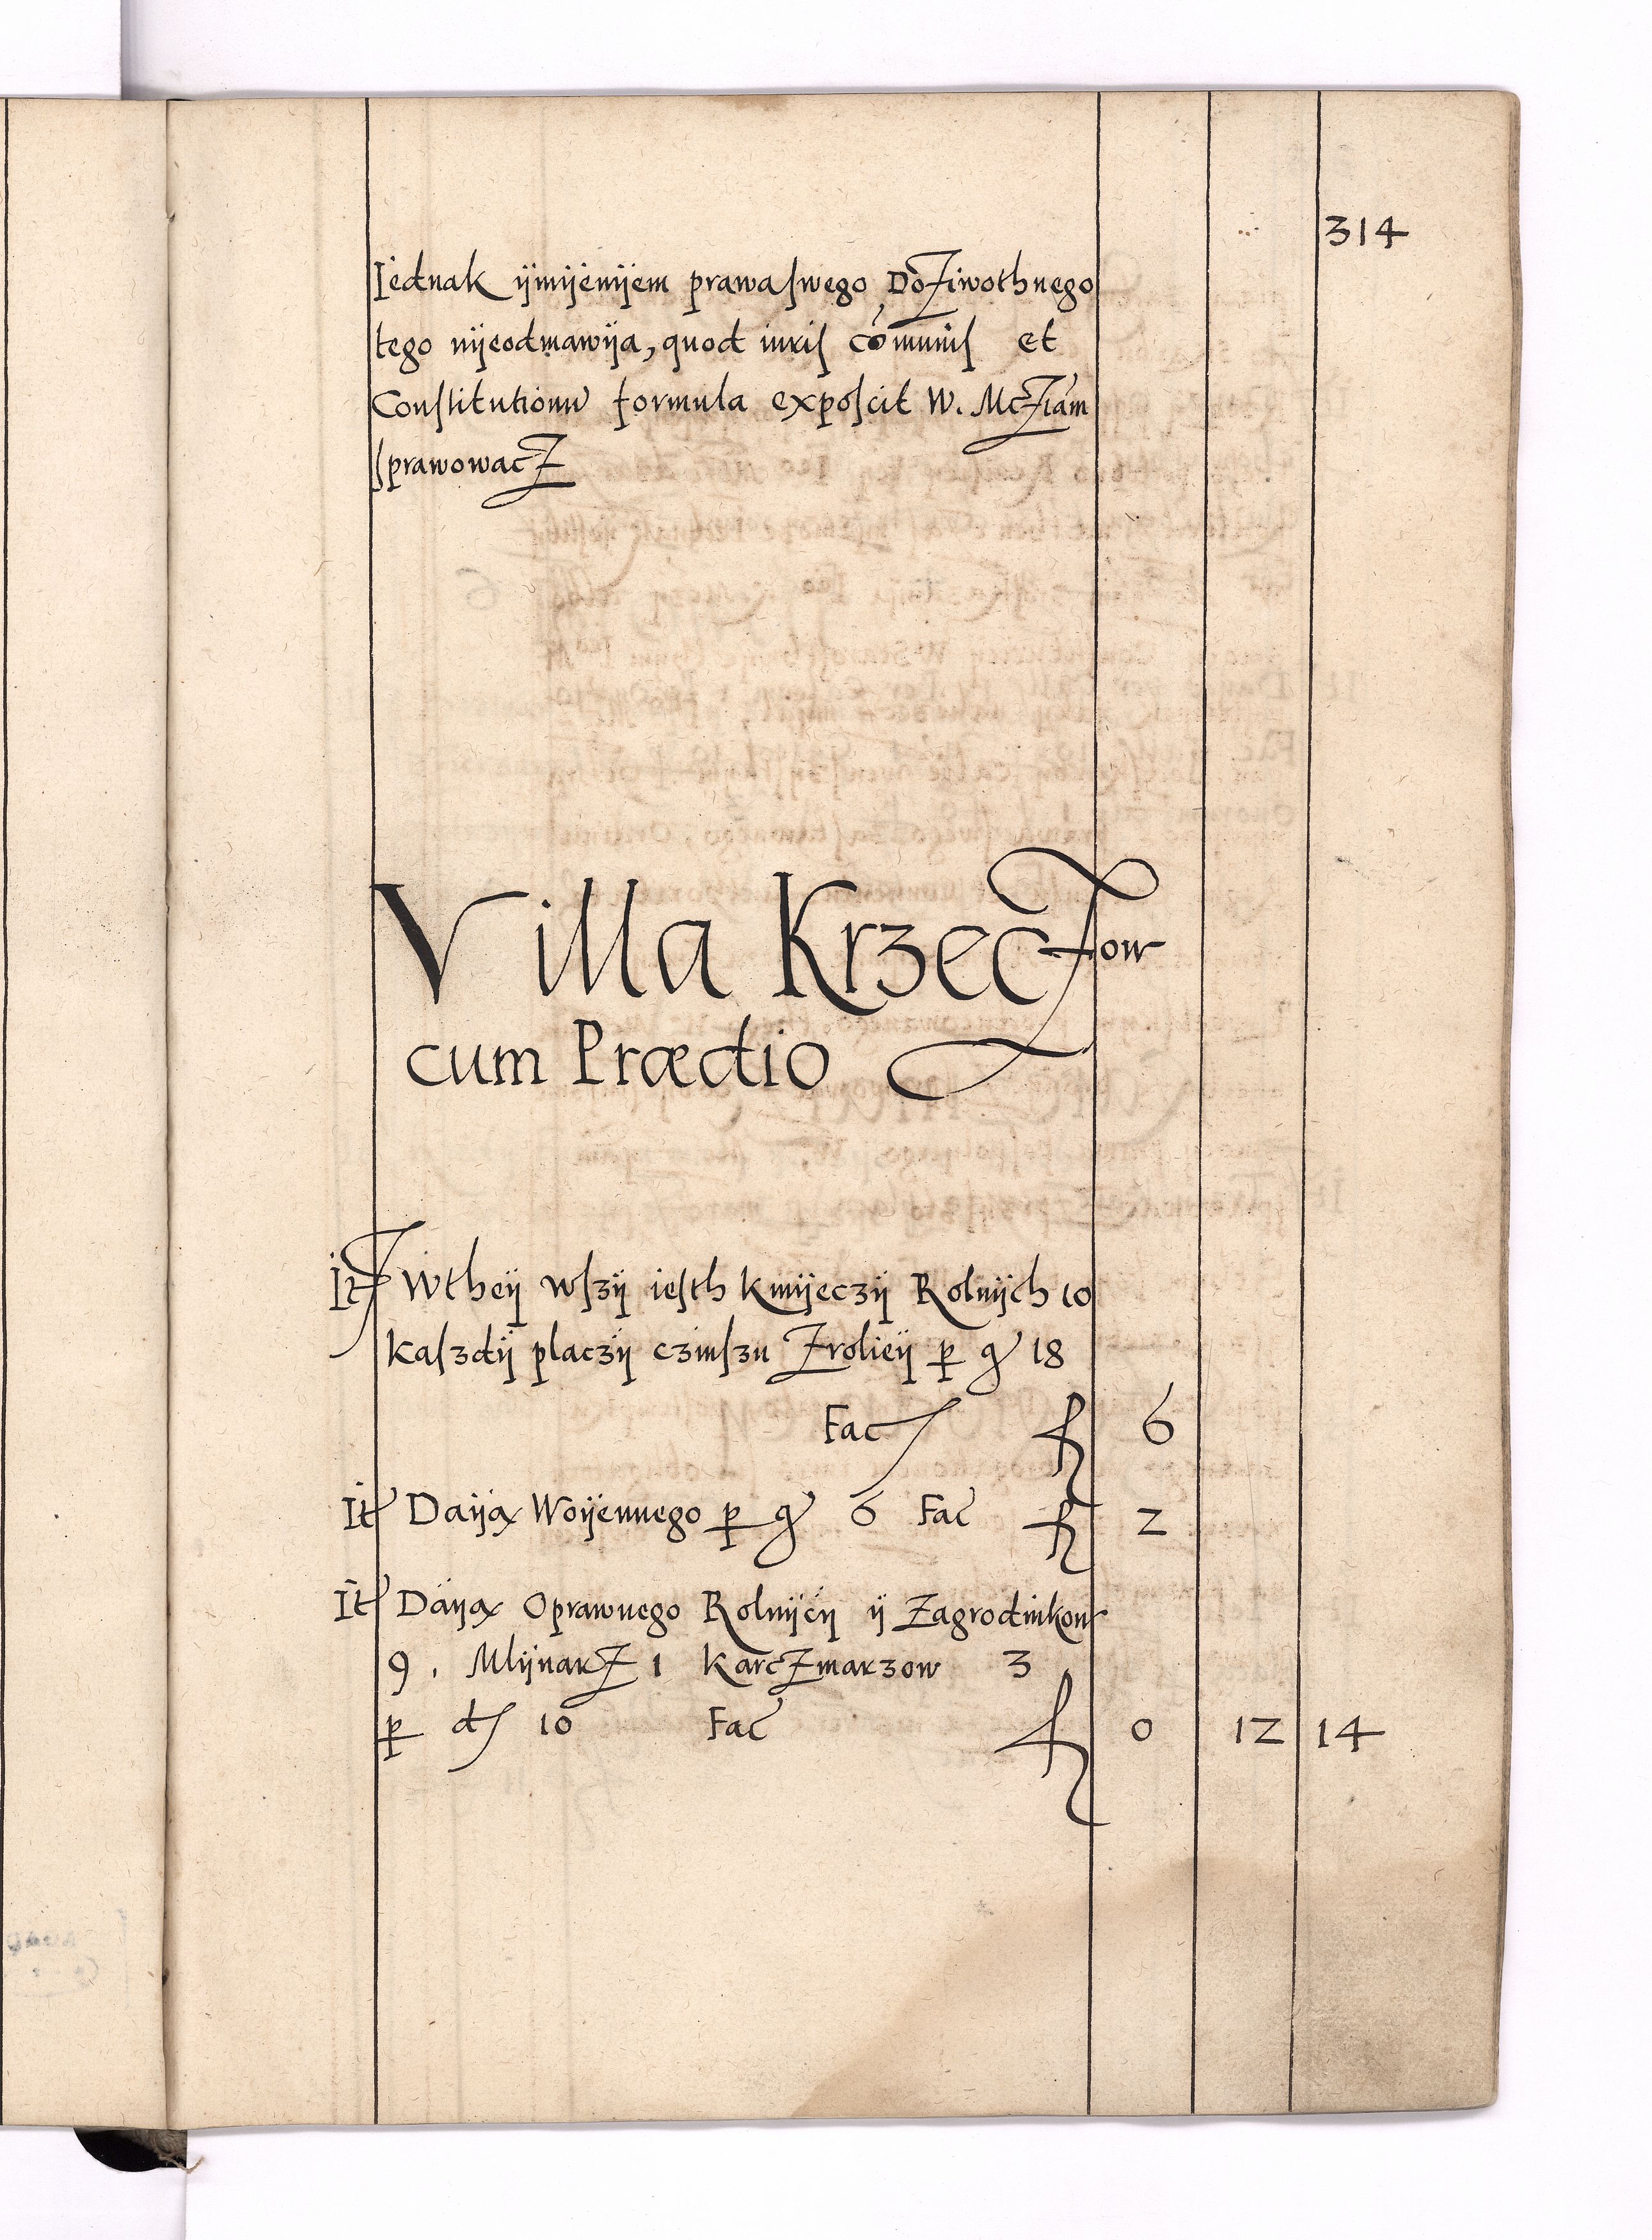 314
Iednak ÿmÿenÿem prawa ſwego DoZiwothnego
tego nÿeodmawÿa, quod iuris cōmunis et
Conſtitutionū formula expoſcit W. McZiam
ſprawowacZ
Villa KrzecZow
cum Prædio
Itẽ Wtheÿ wſzÿ ieſth kmÿeczÿ Rolnÿch 10
kaſzdÿ placzÿ czinſzu Zrolieÿ p gr 18
Fac fl 6
Itẽ Daÿą Woÿennego p gr 6 Fac fl 2
Itẽ Daÿą Oprawnego Rolnÿcÿ ÿ Zagrodnikow
9. MlÿnarZ 1 KarcZmarzow 3
p d 10 Fac fl 0 12 14